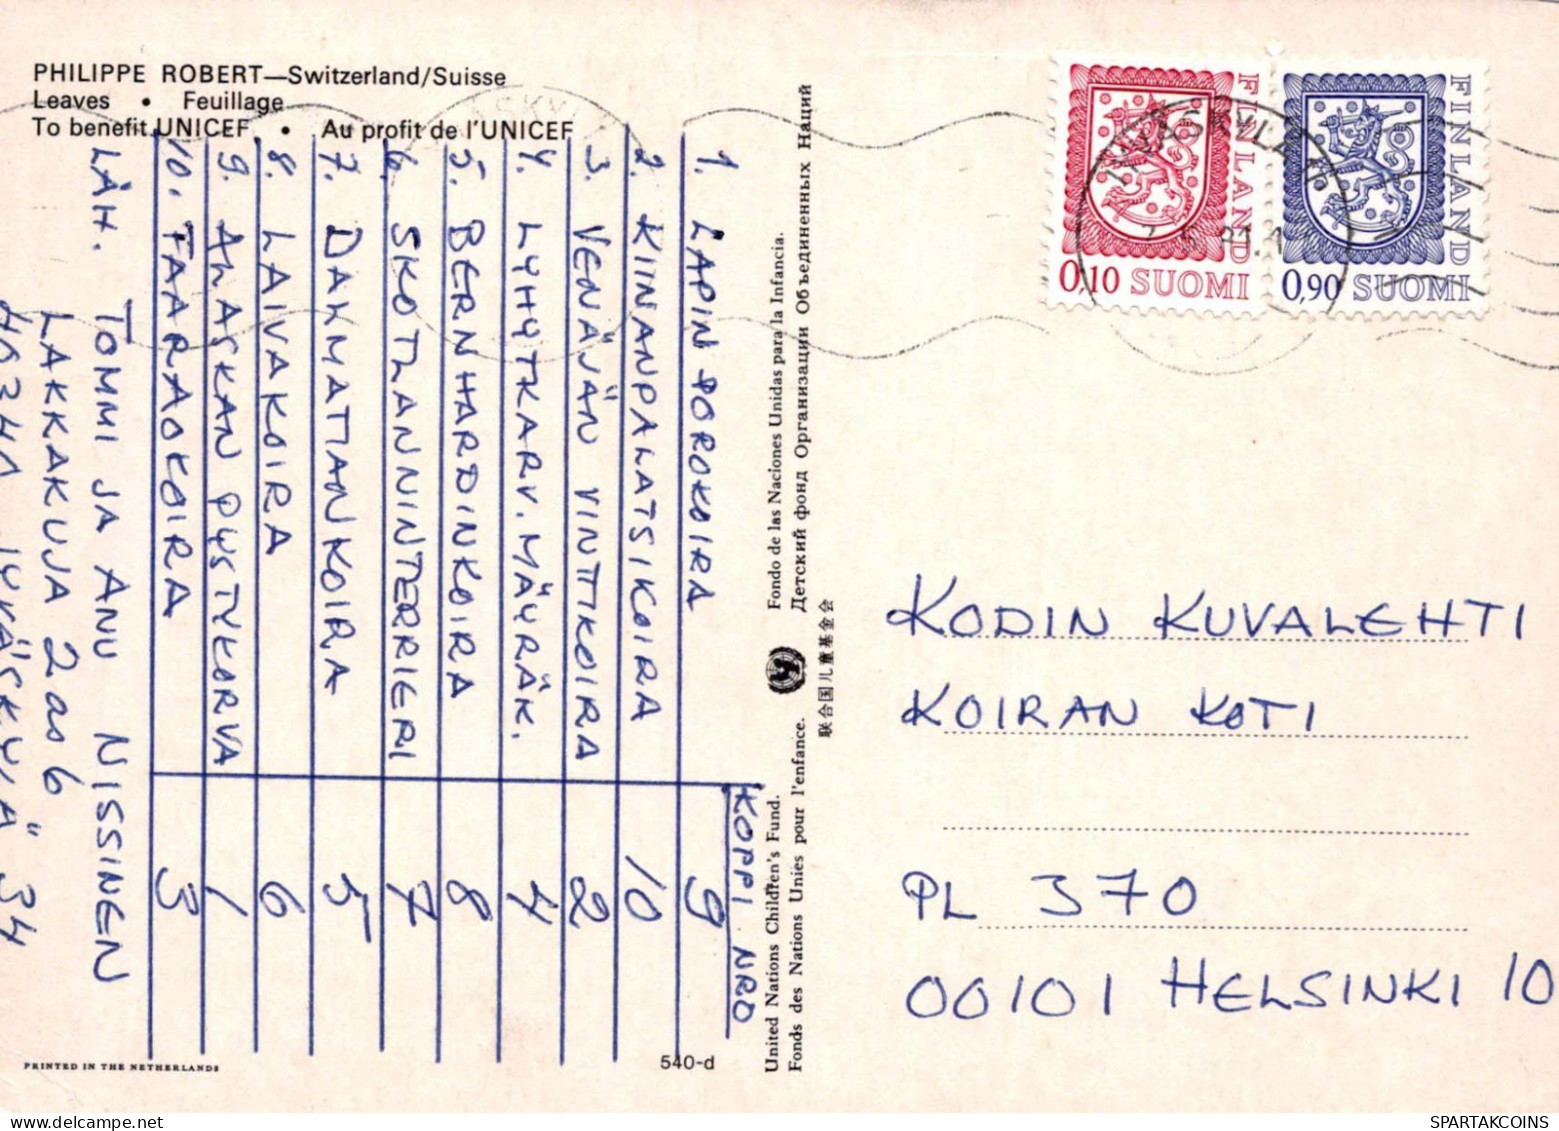 PHILIPPE ROBERT—Switzerland/Suisse
Leaves • Feuillage
To benefit UNICEF • Au profit de l'UNICEF
KOPPI NRO
1. LAPINPOROKOIRA 9
2. KIINANPALATSIKOIRA 10
3. VENÄJÄN VINTTIKOIRA 2
4. LYHYTKARV. MÄYRÄK. 4
5. BERNHARDINKOIRA 8
6. SKOTLANNINTERRIERI 7
7. DALMATIANKOIRA 5
8. LAIVAKOIRA 6
9. ALASKAN PYSTYKORVA 1
10. FAARAOKOIRA 3
LÄH. TOMMI JA ANU NISSINEN
LAKKAKUJA 2 as 6
40340 JYVÄSKYLÄ 34
United Nations Children's Fund. Fondo de las Naciones Unidas para la Infancia.
Fonds des Nations Unies pour l'enfance. Детский фонд Организации Объединенных Наций
联合国儿童基金会
PRINTED IN THE NETHERLANDS
540-d
FINLAND
0,10 SUOMI
FINLAND
0,90 SUOMI
KODIN KUVALEHTI
KOIRAN KOTI
PL 370
00101 HELSINKI 10
SPARTAKCOINS.COM